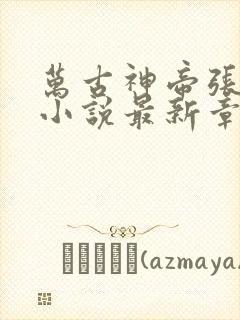 萬古神帝張
小說最新章
(azmaya